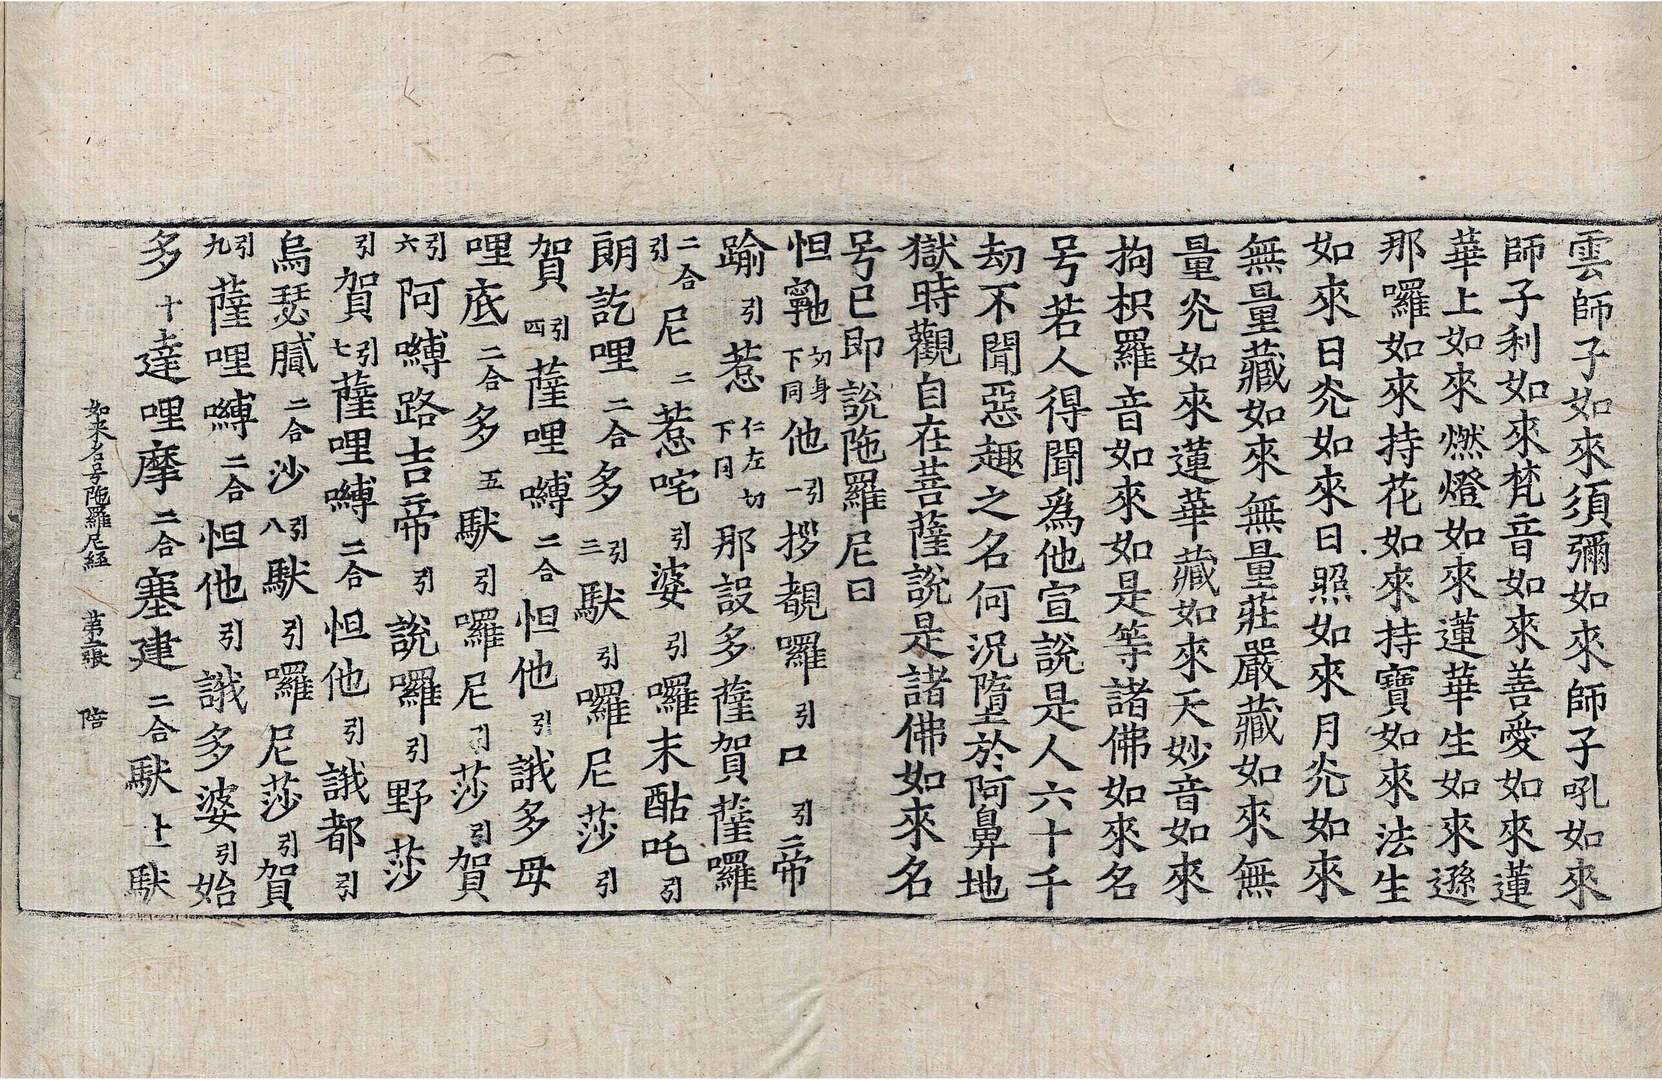 雲師子如來須彌如來師子吼如來
師子利如來梵音如來善愛如來蓮
華上如來燃燈如來蓮華生如來遜
那囉如來持花如來持寶如來法生
如來日光如來日照如來月光如來
無量藏如來無量莊嚴藏如來無
量光如來蓮華藏如來天妙音如來
拘枳羅音如來如是等諸佛如來名
号若人得聞爲他宣說是人六十千
劫不聞惡趣之名何況墮於阿鼻地
獄時觀自在菩薩說是諸佛如來名
号已即說陁羅尼曰
怛寧也切身下同他引一 拶覩囉引口引二帝
踰引惹仁左切下同那設多薩賀薩囉
二合引尼二惹咤引婆引囉末酤吒引
朗訖哩二合多引三䭾引囉尼莎引
賀引四薩哩嚩二合怛他引誐多母
哩底二合多五䭾引囉尼引莎引賀
引六阿嚩路吉帝引說囉引野莎
引賀引七薩哩嚩二合怛他引誐都引
烏瑟膩二合沙引八䭾引囉尼莎引賀
引九薩哩嚩二合怛他引誐多婆引始
多十達哩摩二合塞建二合䭾十一䭾
如來名号陁羅尼經 第二張